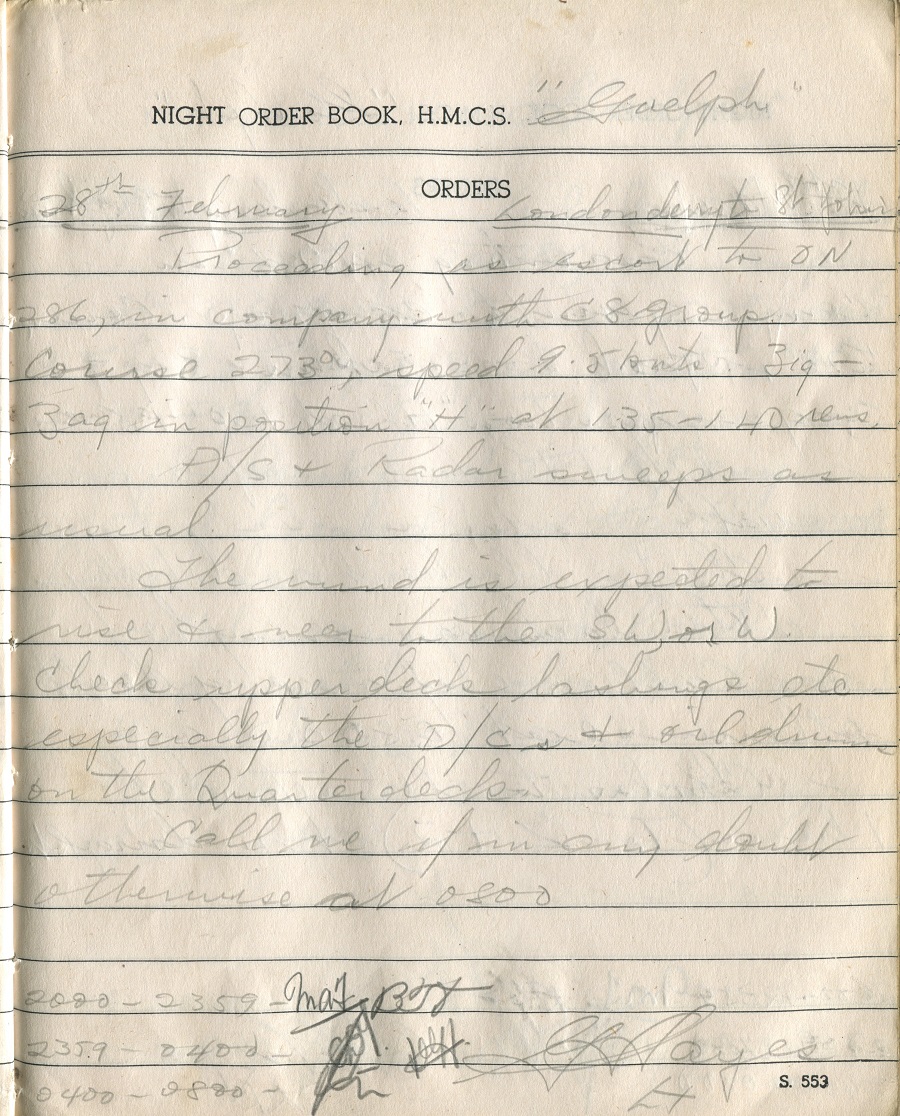 NIGHT ORDER BOOK, H.M.C.S. "Guelph"
ORDERS
28th February Londonderry to St. John's
Proceeding as escort to ON
286, in company with C8 group.
Course 273°, speed 9.5 knots. Zig-
Zag in position "H" at 135-140 revs.
A/S + Radar sweeps as
usual.
The wind is expected to
rise & veer to the SW or W.
Check upper deck lashings etc
especially the D/Cs + oil drums
on the Quarterdeck.
Call me if in any doubt
otherwise at 0800
2000 - 2359 -
2359 - 0400 -
Hayes
0400 - 0800 -
Lt
S. 553